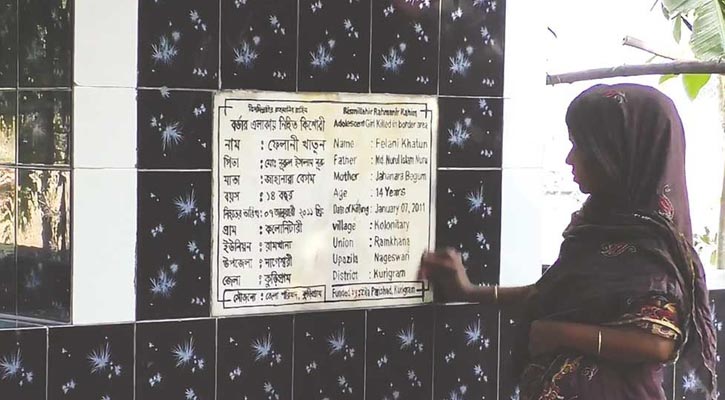 বিসমিল্লাহির রাহমানির রাহিম
বর্ডার এলাকায় নিহিত কিশোরী
নাম : ফেলানী খাতুন
পিতা : মোঃ নুরুল ইসলাম নুরু
মাতা : জাহানারা বেগম
বয়স : ১৪ বছর
তারিখ : ০৭ জানুয়ারী ২০১১ খ্রিঃ
গ্রাম : কলোনিটারী
ইউনিয়ন : রামখানা
উপজেলা : নাগেশ্বরী
জেলা : কুড়িগ্রাম
সৌজন্যে : জেলা পরিষদ, কুড়িগ্রাম
Bismillahir Rahmanir Rahim
Adolescent Girl Killed in border area
Name : Felani Khatun
Father : Md. Nurul Islam Nuru
Mother : Jahanara Begum
Age : 14 Years
Date of Killing : January 07, 2011
village : Kolonitary
Union : Ramkhana
Upazila Nageswari
District : Kurigram
Funded by : Zila Parishad, Kurigram